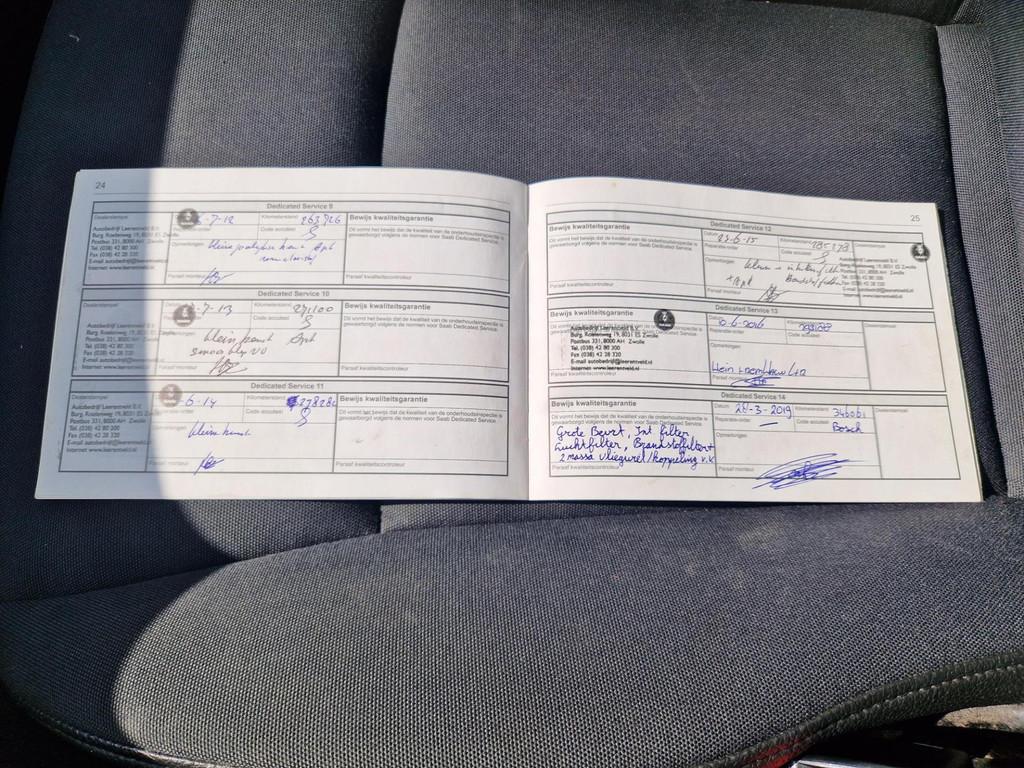 24
Dedicated Service 9
Dealerstempel
Autobedrijf Leerentveld B.V.
Burg. Roelenweg 19, 8031 ES Zwolle
Postbus 331, 8000 AH Zwolle
Tel. (038) 42 80 300
Fax (038) 42 28 320
E-mail autobedrijf@leerentveld.nl
Internet www.leerentveld.nl
-7-12
Kilometerstand
263726
Code accutest
Opmerkingen
kleine
Paraaf monteur
Bewijs kwaliteitsgarantie
Dit vormt het bewijs dat de kwaliteit van de onderhoudsinspectie is
gewaarborgd volgens de normen voor Saab Dedicated Service.
Paraaf kwaliteitscontroleur
Dedicated Service 10
Autobedrijf Leerentveld B.V.
Burg. Roelenweg 19, 8031 ES Zwolle
Postbus 331, 8000 AH Zwolle
Tel. (038) 42 80 300
Fax (038) 42 28 320
E-mail autobedrijf@leerentveld.nl
Internet www.leerentveld.nl
-7-13
Kilometerstand
271100
Code accutest
klein
Paraaf monteur
Bewijs kwaliteitsgarantie
Dit vormt het bewijs dat de kwaliteit van de onderhoudsinspectie is
gewaarborgd volgens de normen voor Saab Dedicated Service.
Paraaf kwaliteitscontroleur
Dedicated Service 11
Autobedrijf Leerentveld B.V.
Burg. Roelenweg 19, 8031 ES Zwolle
Postbus 331, 8000 AH Zwolle
Tel. (038) 42 80 300
Fax (038) 42 28 320
E-mail autobedrijf@leerentveld.nl
Internet www.leerentveld.nl
-6-14
Kilometerstand
278282
Code accutest
kleine
Paraaf monteur
Bewijs kwaliteitsgarantie
Dit vormt het bewijs dat de kwaliteit van de onderhoudsinspectie is
gewaarborgd volgens de normen voor Saab Dedicated Service.
Paraaf kwaliteitscontroleur
25
Dedicated Service 12
Bewijs kwaliteitsgarantie
Dit vormt het bewijs dat de kwaliteit van de onderhoudsinspectie is
gewaarborgd volgens de normen voor Saab Dedicated Service.
Paraaf kwaliteitscontroleur
Datum
23-6-15
Reparatie-order
Kilometerstand
285278
Code accutest
Dealerstempel
Opmerkingen
Paraaf monteur
Autobedrijf Leerentveld B.V.
Burg. Roelenweg 19, 8031 ES Zwolle
Dedicated Service 13
Bewijs kwaliteitsgarantie
Autobedrijf Leerentveld B.V.
Burg. Roelenweg 19, 8031 ES Zwolle
Postbus 331, 8000 AH Zwolle
Tel. (038) 42 80 300
Fax (038) 42 28 320
E-mail autobedrijf@leerentveld.nl
Internet www.leerentveld.nl
Paraaf kwaliteitscontroleur
10-6-2016
Code accutest
Dealerstempel
Klein
Paraaf monteur
Dedicated Service 14
Bewijs kwaliteitsgarantie
Dit vormt het bewijs dat de kwaliteit van de onderhoudsinspectie is
gewaarborgd volgens de normen voor Saab Dedicated Service.
Grote Beurt, Int filter
Luchtfilter, Brandstoffilter+
2 massa vliegwiel/Koppeling v.v.
Paraaf kwaliteitscontroleur
Datum
28-3-2019
Reparatie-order
Kilometerstand
346061
Code accutest
Bosch
Dealerstempel
Opmerkingen
Paraaf monteur